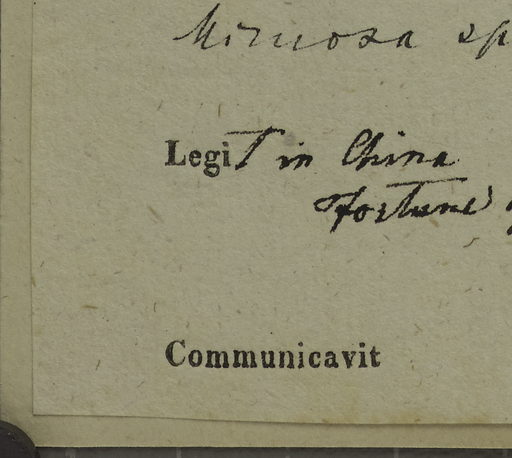 Mimosa sp
Legit in China
Fortune
Communicavit